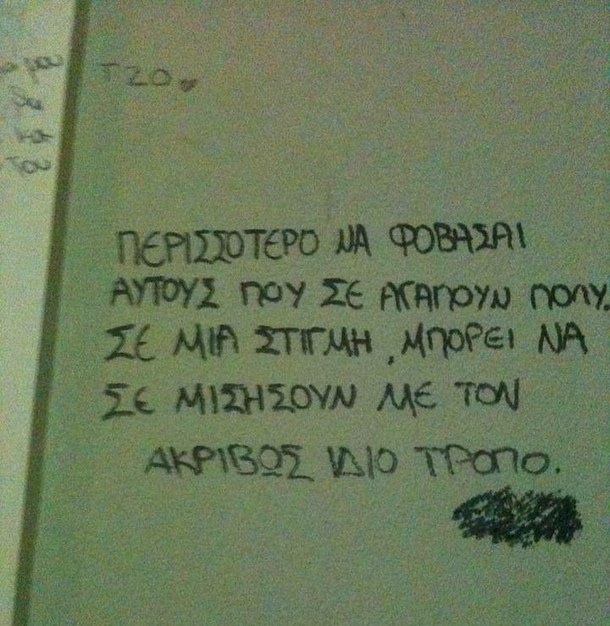 ΤΖΟ
μου
του
ΠΕΡΙΣΣΟΤΕΡΟ ΝΑ ΦΟΒΑΣΑΙ
ΑΥΤΟΥΣ ΠΟΥ ΣΕ ΑΓΑΠΟΥΝ ΠΟΛΥ.
ΣΕ ΜΙΑ ΣΤΙΓΜΗ, ΜΠΟΡΕΙ ΝΑ
ΣΕ ΜΙΣΗΣΟΥΝ ΜΕ ΤΟΝ
ΑΚΡΙΒΩΣ ΙΔΙΟ ΤΡΟΠΟ.